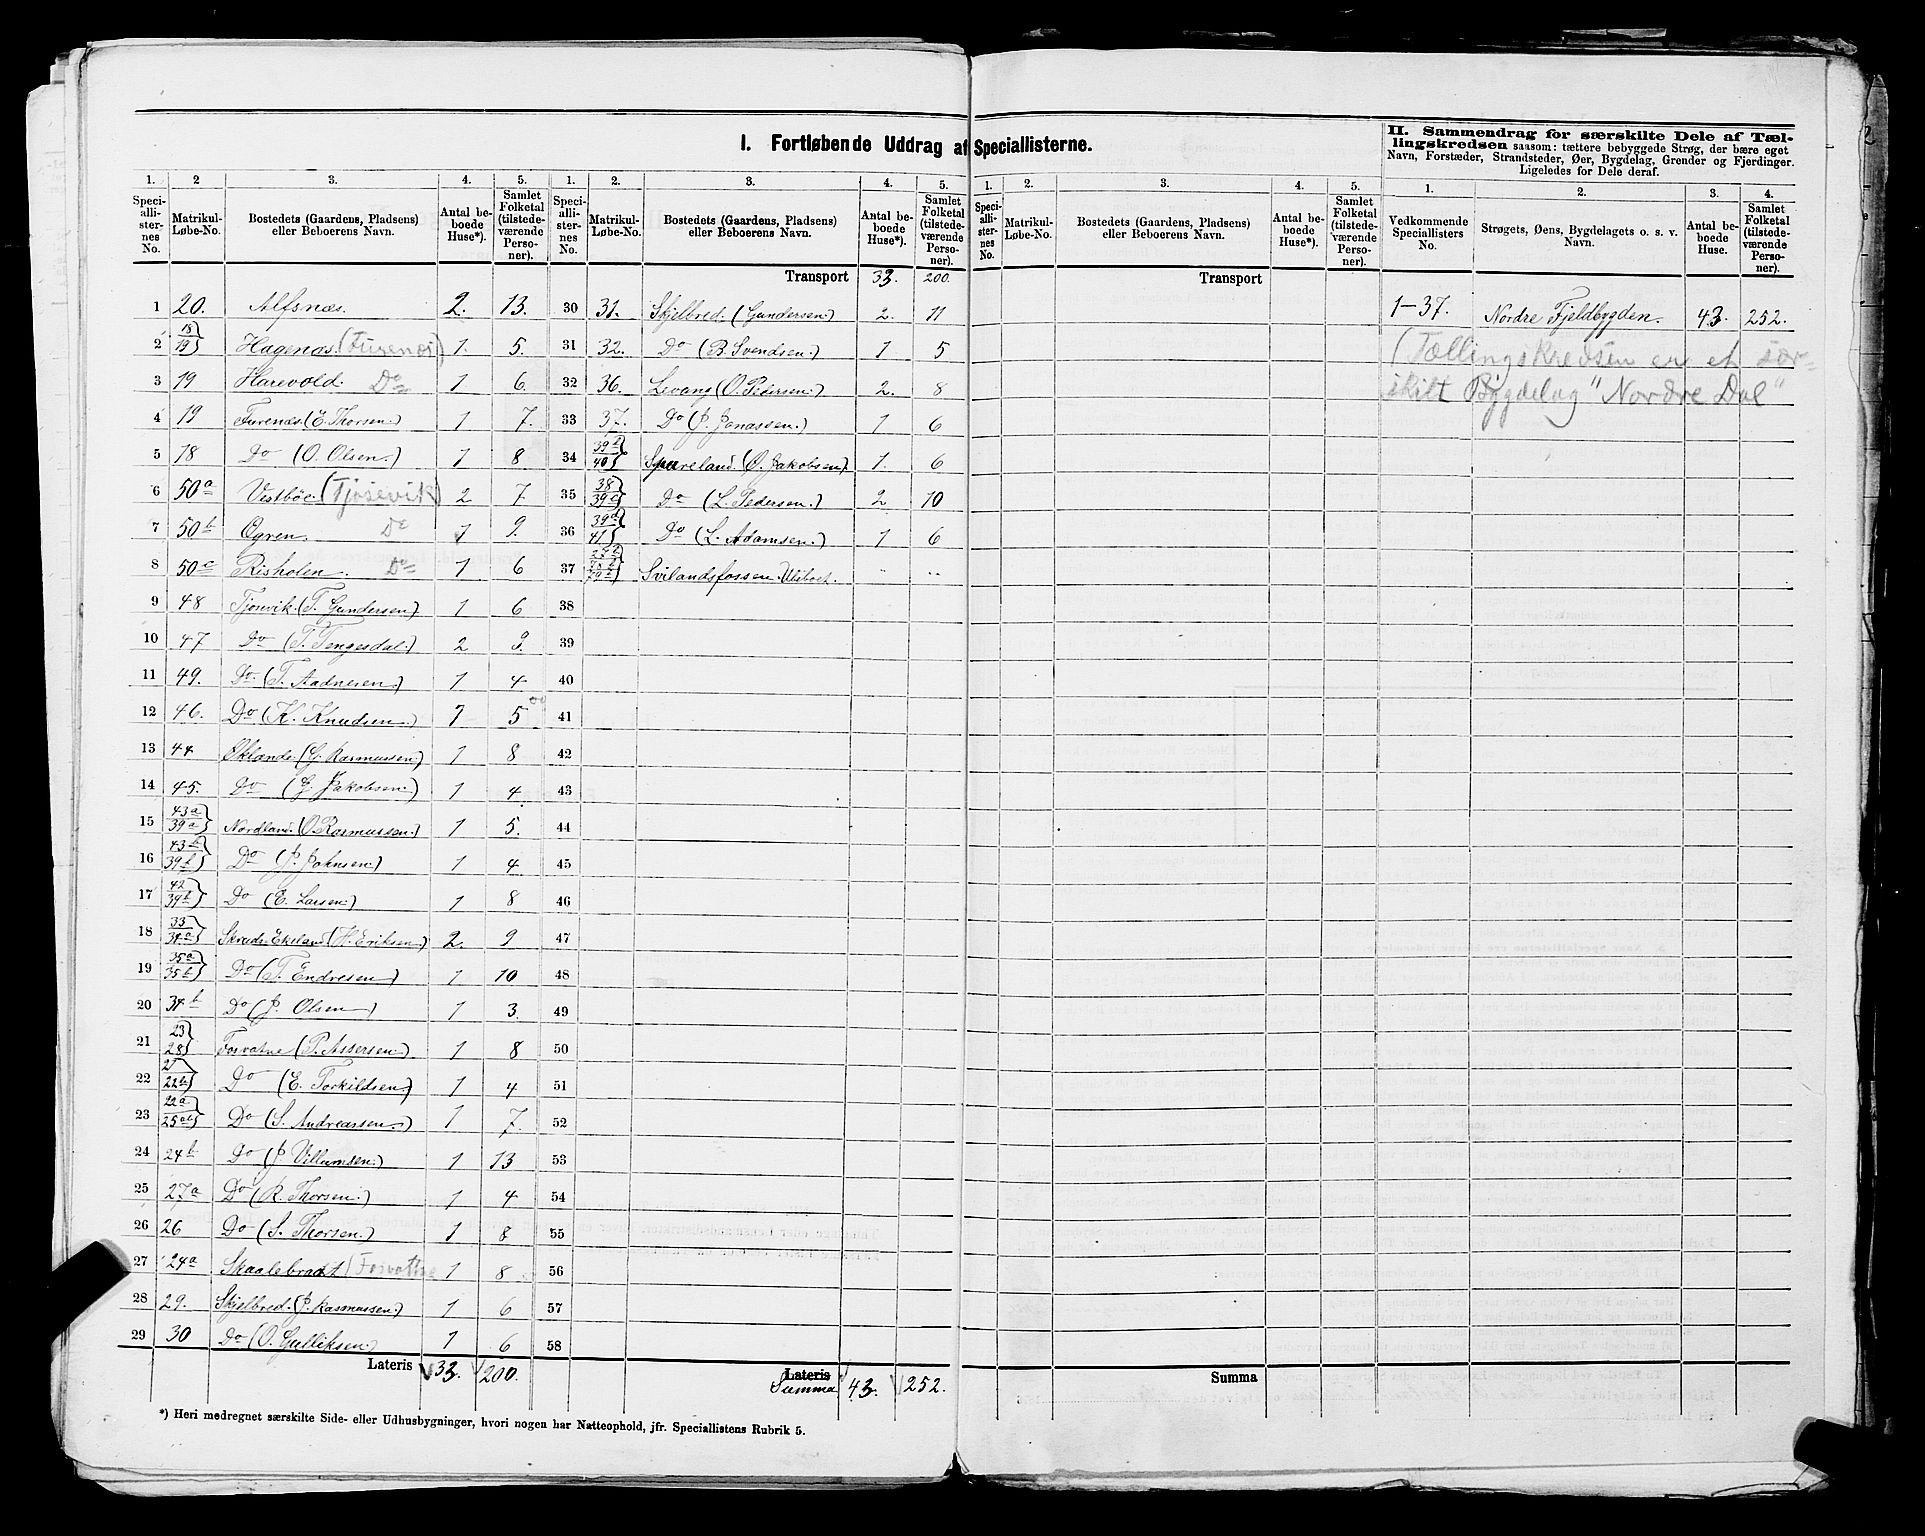 I. Fortløbende Uddrag af Speciallisterne.
II. Sammendrag for særskilte Dele af Tæl-
lingskredsen saasom: tættere bebyggede Strøg, der bære eget
Navn, Forstæder, Strandsteder, Øer, Bygdelag, Grender og Fjerdinger.
Ligeledes for Dele deraf.
1. 2 3. 4. 5. 1. 2. 3. 4. 5. 1. 2. 3. 4. 5. 1. 2. 3. 4.
Speci-alli-ster-nes No. Matrikul-Løbe-No. Bostedets (Gaardens, Pladsens) eller Beboerens Navn. Antal be-boede Huse*). Samlet Folketal (tilstede-værende Perso-ner).
Speci-alli-ster-nes No. Matrikul-Løbe-No. Bostedets (Gaardens, Pladsens) eller Beboerens Navn. Antal be-boede Huse*). Samlet Folketal (tilstede-værende Perso-ner).
Speci-alli-ster-nes No. Matrikul-Løbe-No. Bostedets (Gaardens, Pladsens) eller Beboerens Navn. Antal be-boede Huse*). Samlet Folketal (tilstede-værende Perso-ner).
Vedkommende Speciallisters No. Strøgets, Øens, Bygdelagets o. s. v. Navn. Antal be-boede Huse. Samlet Folketal (tilstede-værende Perso-ner).
1 20. Alfsnæs. 2. 13.
2 18/19 Hagenæs. (Furenæs) 1. 5.
3 19 Harevold. Do 1 6.
4 19 Furenæs. (E. Thorsen.) 1 7.
5 18 Do (O. Olsen.) 1 8
6 50a Vestbøe (Tjøsevik) 2 7.
7 50b Øgren. Do 1 9.
8 50c Risholen. Do 1 6
9 48 Tjosvik. (T. Gundersen) 1 6
10 47 Do (T. Tengesdal.) 2 9.
11 49. Do. (T. Aadnesen) 1 4
12 46. Do (K. Knudsen.) 1 5
13 44 Øklande. (G. Rasmussen) 1 8
14 45. Do (G. Jakobsen.) 1 4
15 43a/39a Nordland. (O. Rasmussen.) 1 5.
16 43b/39b Do (J. Johnsen.) 1 4
17 42/39b Do (E. Larsen.) 1 8
18 33/34a Skreds-Ekeland (H. Eriksen) 2. 9
19 35a/35b Do (T. Endresen) 1 10
20 34b Do (J. Olsen) 1 3.
21 23/28 Fosvatne (P. Assersen.) 1 8
22 21/22b Do (E. Torkildsen) 1 4
23 22a/25ab Do (S. Andreassen.) 1 7.
24 24b Do (J. Villumsen.) 1 13
25 27a Do (R. Thorsen.) 1 4
26 26 Do (S. Thorsen.) 1 8
27 24a Skaalebraat (Fosvatne 1 8
28 29. Skjelbred. (J. Rasmussen.) 1 6
29 30 Do (O. Gulliksen) 1 6
Lateris 33. 200.
Transport 33. 200.
30 31. Skjelbred. (Gundersen.) 2. 11
31 32. Do (B. Svendsen.) 1 5
32 36. Levang (O. Pedersen.) 2. 8
33 37. Do (J. Jonassen.) 1 6
34 39/40 Spæreland. (O. Jakobsen) 1. 6
35 38/39c Do (L. Pedersen.) 2 10
36 39d/41 Do (L. Adamsen.) 1 6
37 Svilandsfossen. (Ubeboet. " "
38
39
40
41
42
43
44
45
46
47
48
49
50
51
52
53
54
55
56
57
58
Lateris
Summa 43. 252.
Transport
Summa
1-37. Nordre Fjeldbygden. 43. 252.
(Tællingskredsen er et sær-
skilt Bygdelag "Nordre Dal"
*) Heri medregnet særskilte Side- eller Udhusbygninger, hvori nogen har Natteophold, jfr. Speciallistens Rubrik 5.